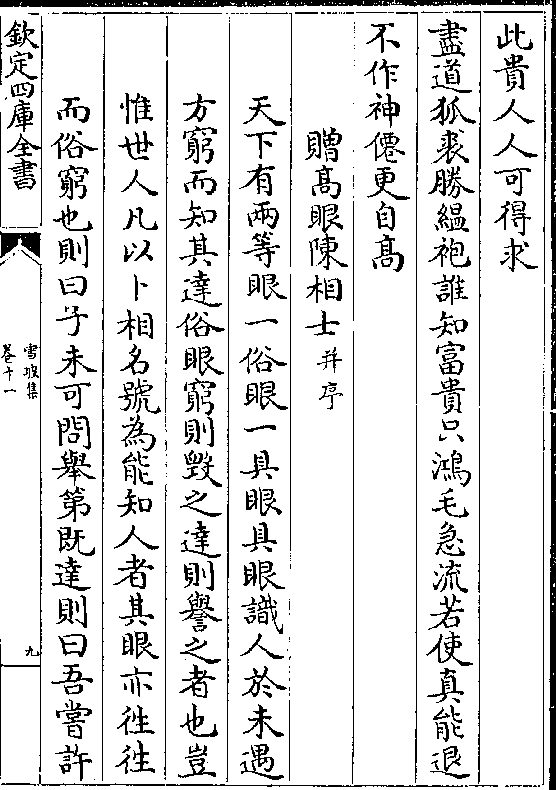 此貴人人可得求
盡道狐裘勝縕袍誰知富貴只鴻毛急流若使真能退
不作神僊更自髙
贈髙眼陳相士并序
天下有兩等眼一俗眼一具眼具眼識人於未遇
方窮而知其達俗眼窮則毁之達則譽之者也豈
惟世人凡以卜相名號為能知人者其眼亦往往
而俗窮也則曰子未可問舉第既達則曰吾嘗許
欽定四庫全書
雪坡集
卷十一
九